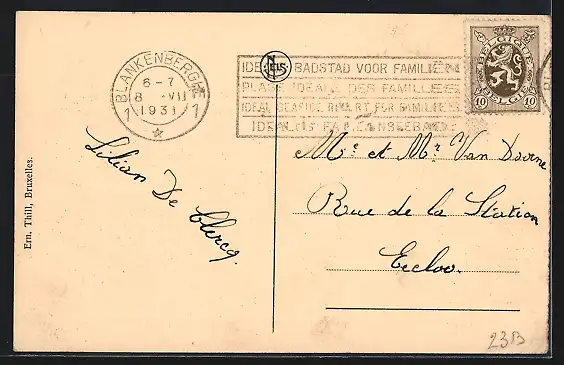 BLANKENBERGE
6-7
8 VII
1931
1 1
NELS
IDEALE BADSTAD VOOR FAMILIEN
PLAGE IDEALE DES FAMILLES
IDEAL SEASIDE RESORT FOR FAMILIES
IDEALES FAMILIENSEEBAD
BELGIQUE
10 10
BELGIË
Lilian De Clercq.
Me et Mr Van Doorne
Rue de la Station
Eecloo.
Ern. Thill, Bruxelles.
23B